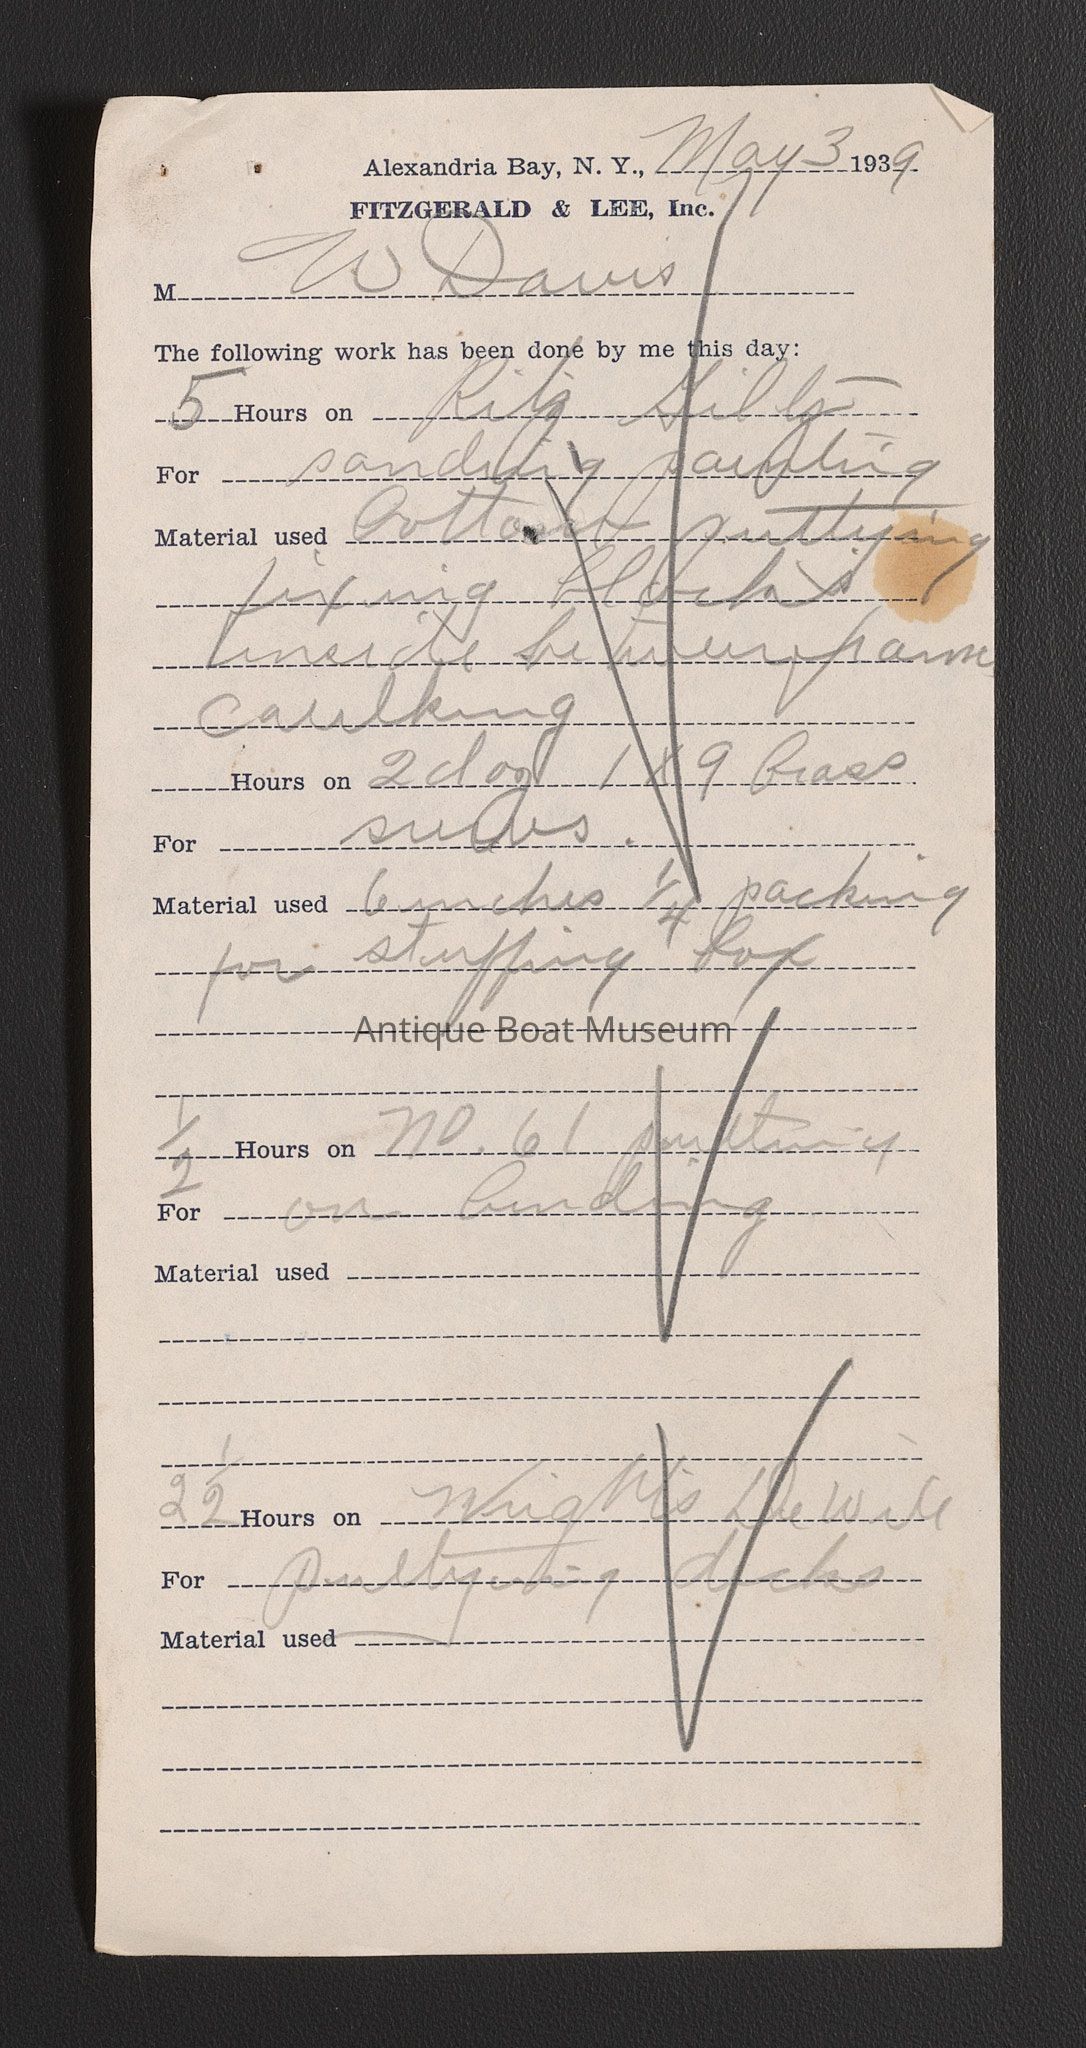 Alexandria Bay, N. Y., May 3 1939
FITZGERALD & LEE, Inc.
M W Davis
The following work has been done by me this day:
5 Hours on
For sanding painting
Material used bottom puttying
fixing blocks
inside between
caulking
Hours on 2 doz 1 x 9 brass
For screws.
Material used 6 inches 1/4 packing
for stuffing box
Antique Boat Museum
1/2 Hours on no. 61 puttying
For on landing
Material used
2 1/2 Hours on Wright's DeWite
For Puttying decks
Material used